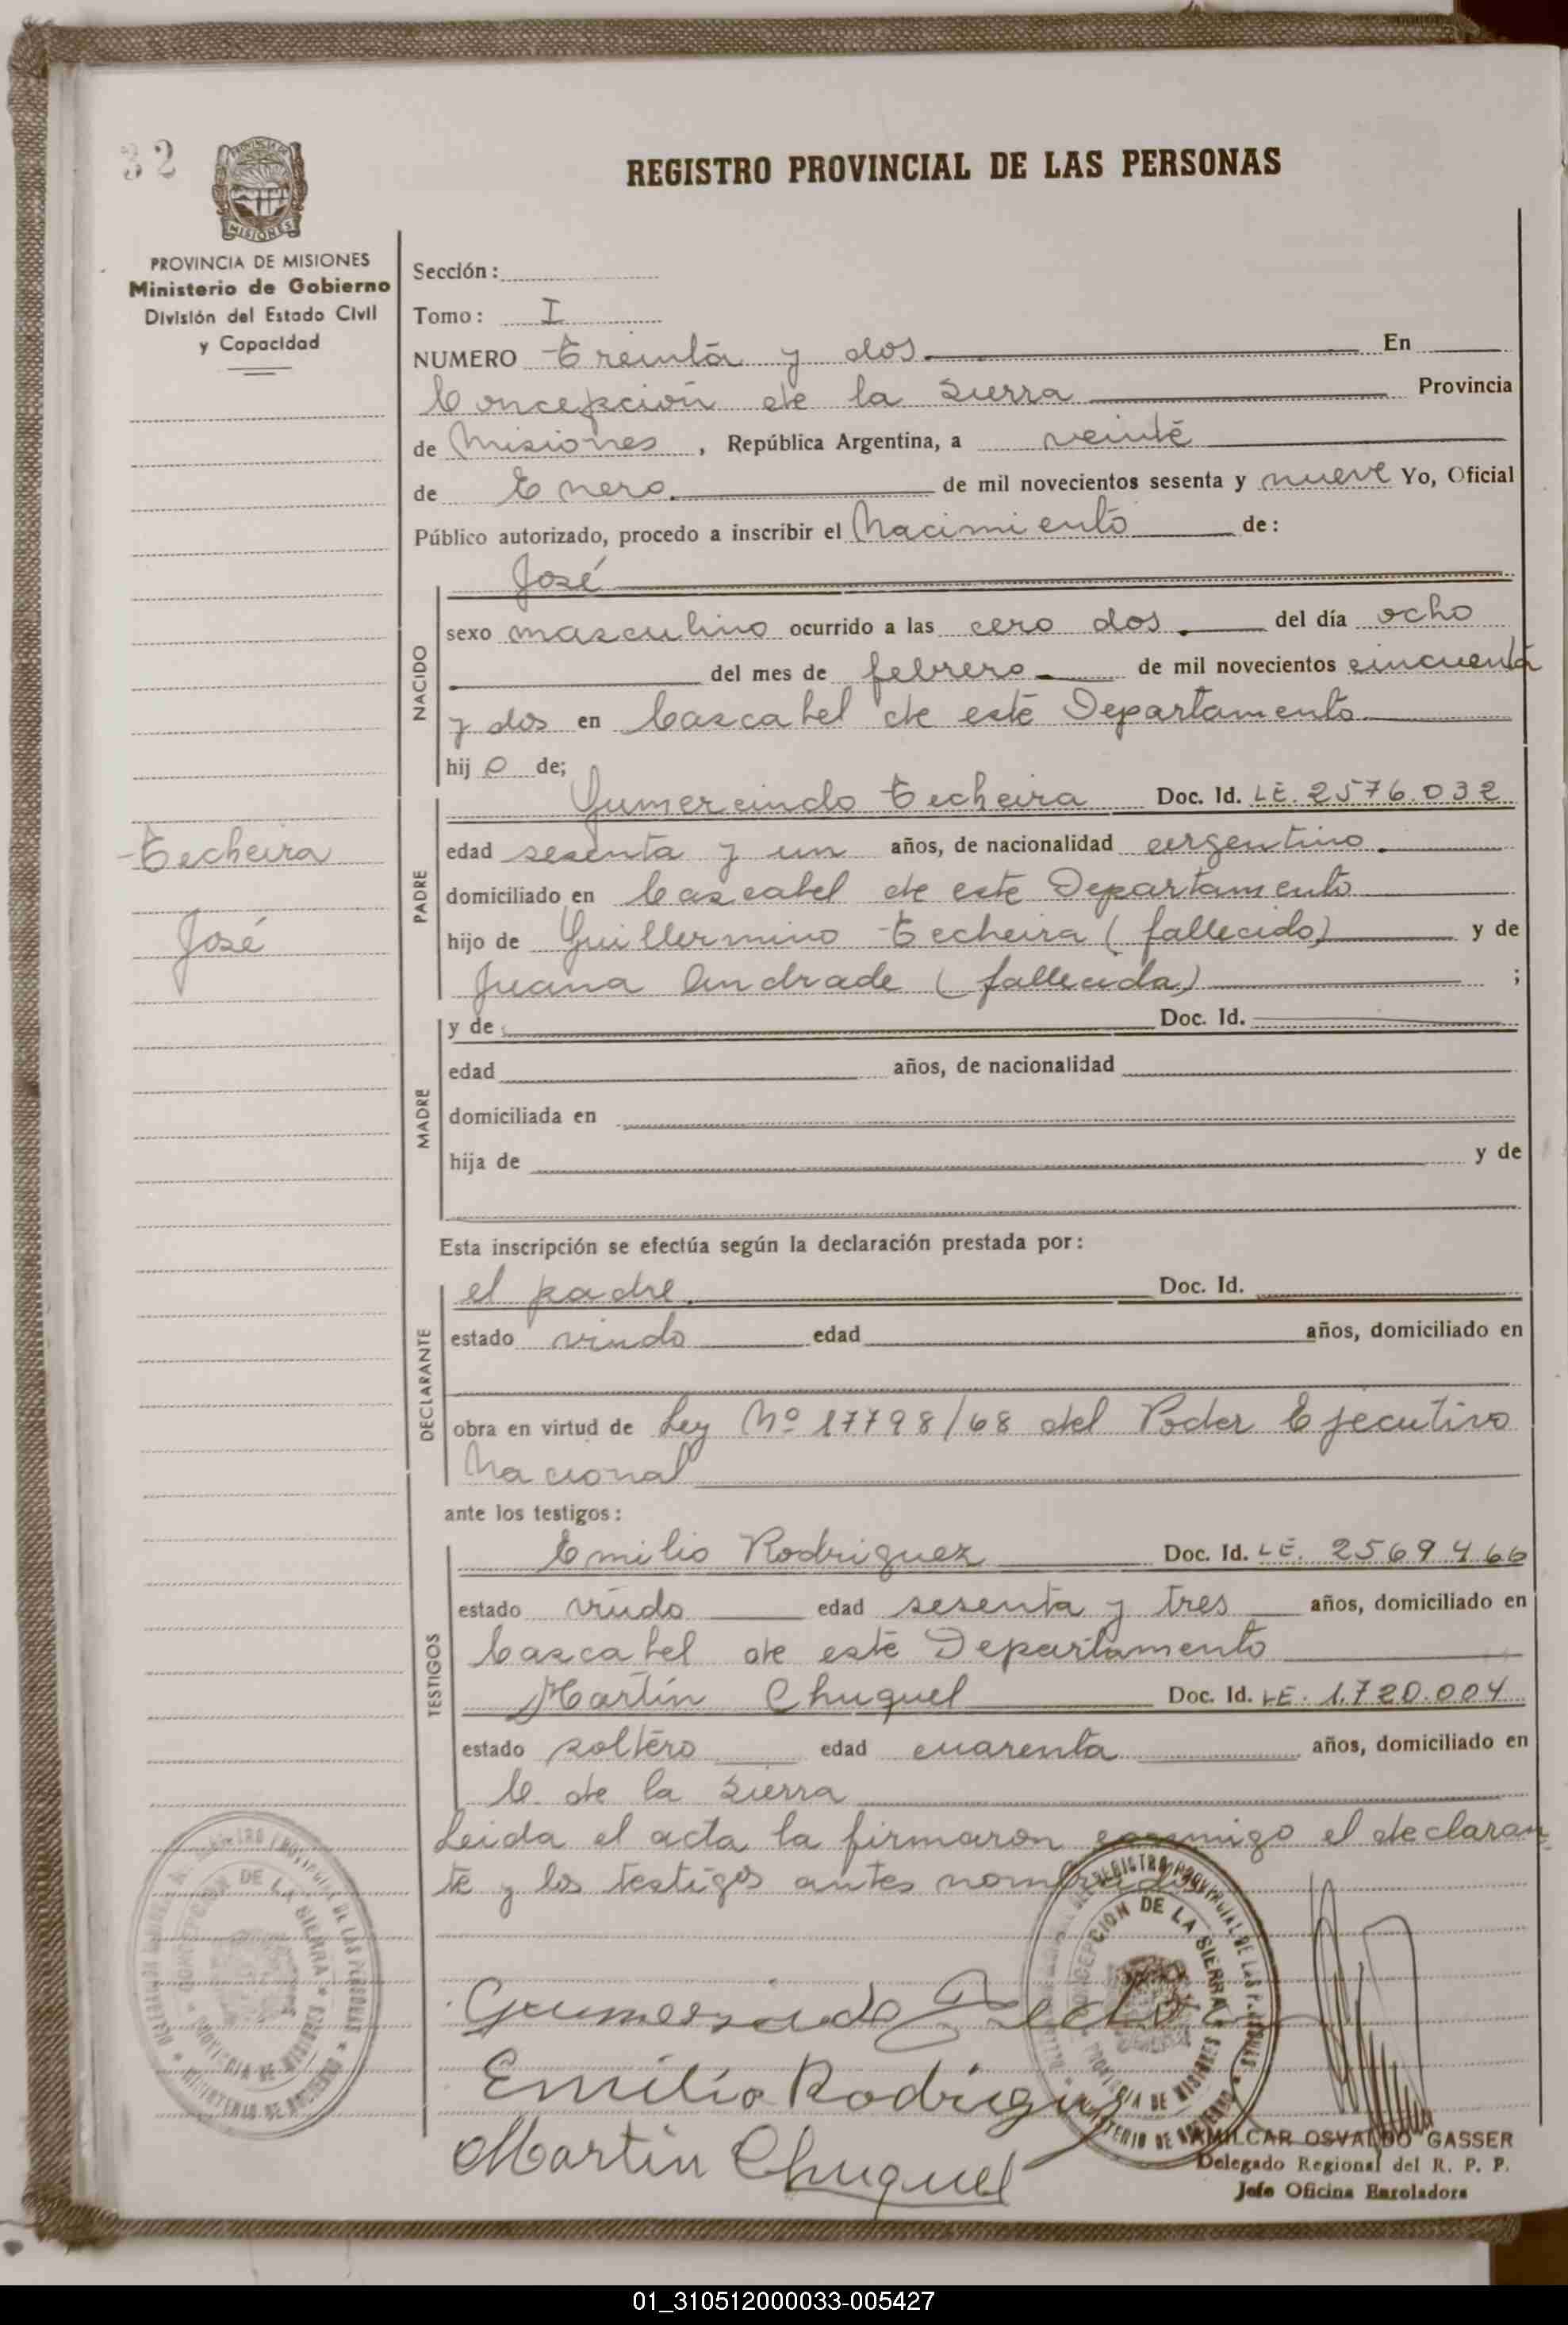 32
PROVINCIA DE
MISIONES
PROVINCIA DE MISIONES
Ministerio de Gobierno
División del Estado Civil
y Capacidad
REGISTRO PROVINCIAL DE LAS PERSONAS
Sección:
Tomo: I
NUMERO Treinta y dos En
Concepción de la Sierra Provincia
de Misiones, República Argentina, a veinte
de Enero. de mil novecientos sesenta y nueve Yo, Oficial
Público autorizado, procedo a inscribir el Nacimiento de:
José
NACIDO
sexo masculino ocurrido a las cero dos. del día ocho
del mes de febrero de mil novecientos cincuenta
y dos en Cascabel de este Departamento
hijo de;
PADRE
Gumercindo Techeira Doc. Id. LE. 2576.032
edad sesenta y un años, de nacionalidad argentino.
domiciliado en Cascabel de este Departamento
hijo de Guillermino Techeira (fallecido) y de
Juana Andrade (fallecida) ;
Techeira
José
MADRE
y de Doc. Id.
edad años, de nacionalidad
domiciliada en
hija de y de
Esta inscripción se efectúa según la declaración prestada por:
DECLARANTE
el padre. Doc. Id.
estado viudo edad años, domiciliado en
obra en virtud de Ley Nº 17798/68 del Poder Ejecutivo
Nacional
ante los testigos:
TESTIGOS
Emilio Rodriguez Doc. Id. LE. 2569466
estado viudo edad sesenta y tres años, domiciliado en
Cascabel de este Departamento
Martín Chuquel Doc. Id. LE. 1.720.004
estado soltero edad cuarenta años, domiciliado en
C. de la Sierra
Leida el acta la firmaron conmigo el declaran
te y los testigos antes nombrados
Gumersindo
Emilio Rodrigu
Martin Chuquel
CONCEPCION DE LA SIERRA
PROVINCIA DE MISIONES
REGISTRO PROVINCIAL DE LAS PERSONAS
MINISTERIO DE GOBIERNO
AMILCAR OSVALDO GASSER
Delegado Regional del R. P. P.
Jefe Oficina Enroladora
01_310512000033-005427